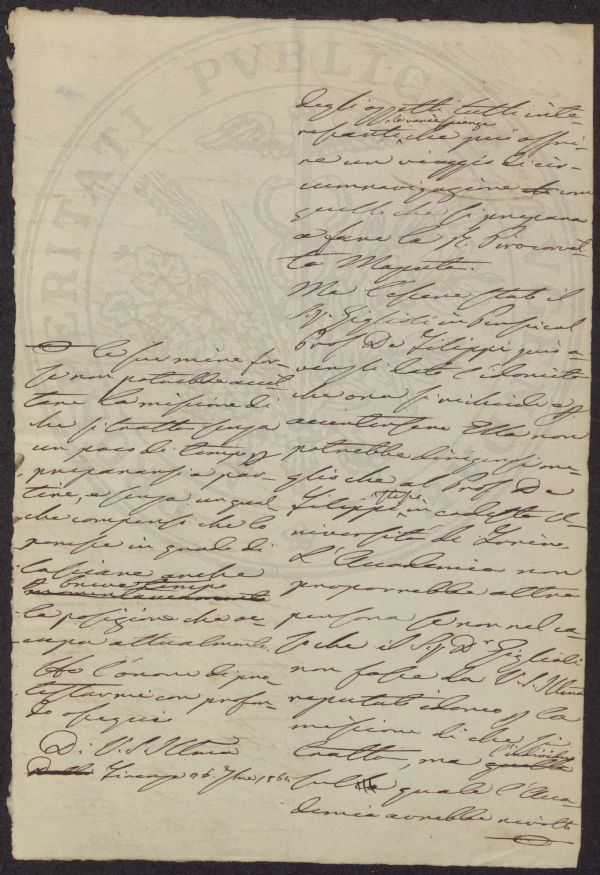 degli oggetti tutti inte-
ressanti le varie scienze che può offri-
re un viaggio di cir-
cumnavigazione come
quello che si prepara
a fare la R. Pirocorvet-
ta Magenta.
Ma l'essere stato il
Sig. Giglioli in Persia col
Prof. De Filippi può a-
vergli dato l'idoneità
che ora si richiede e
accertarsene Ella non
potrebbe dirigersi me-
glio che al Prof. De
Filippi stesso in codesta U-
niversità di Torino.
L'Accademia non
proporrebbe altra
persona se non nel ca-
so che il Sig. Dr. Giglioli
non fosse da V. S. Illma
reputato idoneo per la
missione di che si
tratta, ma
sulla quale l'Acca-
demia avrebbe rivolto
le sue mire for-
se non potrebbe accet-
tare la missione di
che si tratta senza
un poco di tempo per
prepararsi a par-
tire, e senza un qual-
che compenso che lo
ponesse in grado di
lasciare anche
brevi tempo
momentaneamente
la posizione che oc-
cupa attualmente.
Ho l'onore di pro-
testarmi con profon-
do ossequio
Di V. S. Illma
Firenze 26. 7bre 186